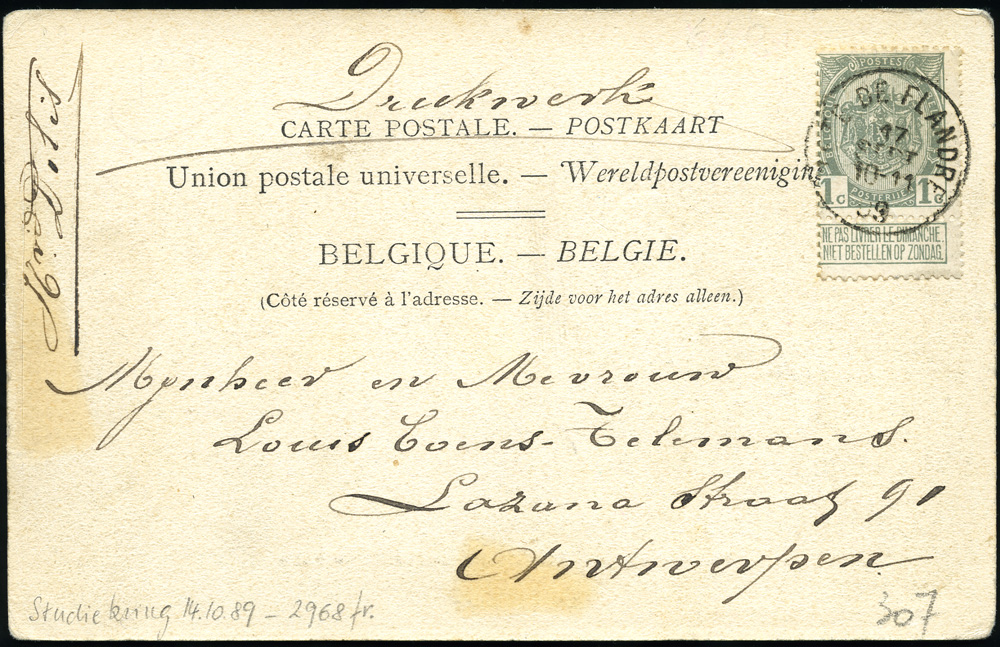 Drukwerk
CARTE POSTALE. — POSTKAART
Union postale universelle. — Wereldpostvereeniging
BELGIQUE. — BELGIE.
(Côté réservé à l'adresse. — Zijde voor het adres alleen.)
POSTES
DE FLANDRE
17
SEPT
10-11
09
1c 1c
POSTERIJEN
NE PAS LIVRER LE DIMANCHE.
NIET BESTELLEN OP ZONDAG.
Mynheer en Mevrouw
Louis Coens-Telemans.
Lozana Straat 91
Antwerpen
Studiekring 14.10.89 - 2968 fr.
307